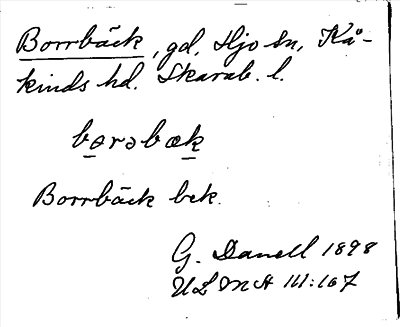 Borrbäck, gd, Hjo sn, Kå-
kinds hd. Skarab. l.
bərəbæk
Borrbäck bek.
G. Danell 1898
ULMA 111:167